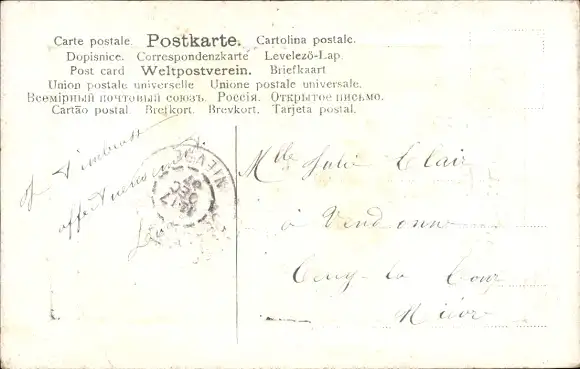 Carte postale. Postkarte. Cartolina postale.
Dopisnice. Correspondenzkarte Levelező-Lap.
Post card Weltpostverein. Briefkaart
Union postale universelle Unione postale universale.
Всемірный почтовый союзъ. Россія. Открытое письмо.
Cartão postal Bretkort. Brevkort. Tarjeta postal.
NIEVRE
Mlle Julie Clair
à Vendonne
Cercy-la Tour
Nièvre